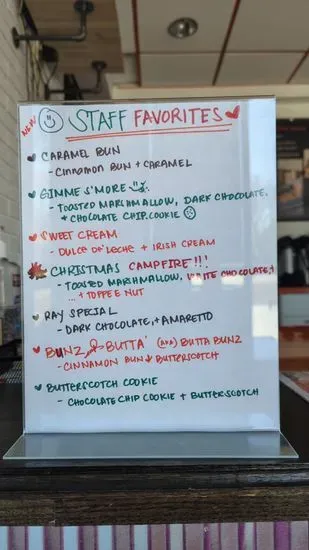 NEW STAFF FAVORITES
CARAMEL BUN
- CINNAMON BUN + CARAMEL
GIMME S'MORE
- TOASTED MARSHMALLOW, DARK CHOCOLATE,
+ CHOCOLATE CHIP COOKIE
SWEET CREAM
- DULCE DE LECHE + IRISH CREAM
CHRISTMAS CAMPFIRE!!!
- TOASTED MARSHMALLOW, WHITE CHOCOLATE, +
... + TOFFEE NUT
RAY SPECIAL
- DARK CHOCOLATE, + AMARETTO
BUNZ & BUTTA' (AKA) BUTTA BUNZ
- CINNAMON BUN & BUTTERSCOTCH
BUTTERSCOTCH COOKIE
- CHOCOLATE CHIP COOKIE + BUTTERSCOTCH